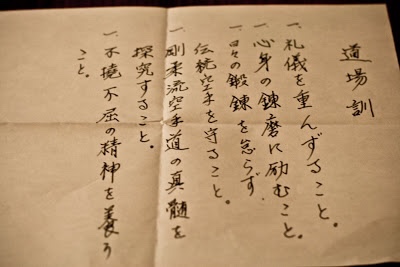 道場訓
一、礼儀を重んずること。
一、心身の錬磨に励むこと。
一、日々の鍛錬を怠らず
伝統空手を守ること。
一、剛柔流空手道の真髄を
探究すること。
一、不撓不屈の精神を養う
こと。